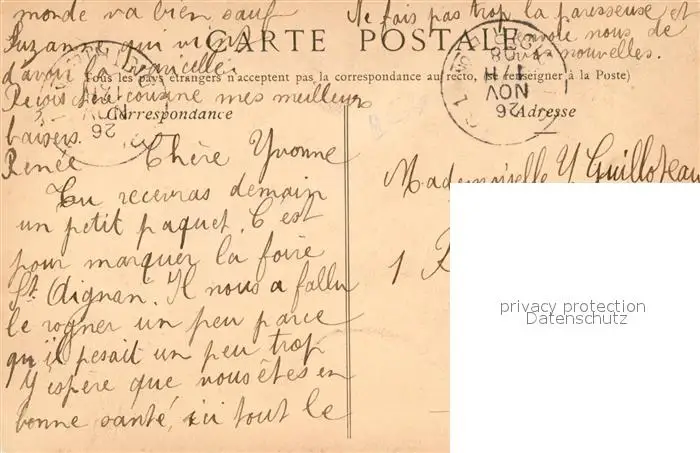 monde va bien sauf
Suzanne qui vient
d'avoir la varicelle.
Reçois chère cousine mes meilleurs
baisers.
Renée
Ne fais pas trop la paresseuse et
envoie nous de
vos nouvelles.
CARTE POSTALE
Tous les pays étrangers n'acceptent pas la correspondance au recto, (se renseigner à la Poste)
Correspondance
Adresse
26
NOV
26
NOV
11
08
Chère Yvonne
Tu recevras demain
un petit paquet. C'est
pour marquer la foire
St. Aignan. Il nous a fallu
le rogner un peu parce
qu'il pesait un peu trop
J'espère que vous êtes en
bonne santé, ici tout le
Mademoiselle Y Guilloteau
1
privacy protection
Datenschutz